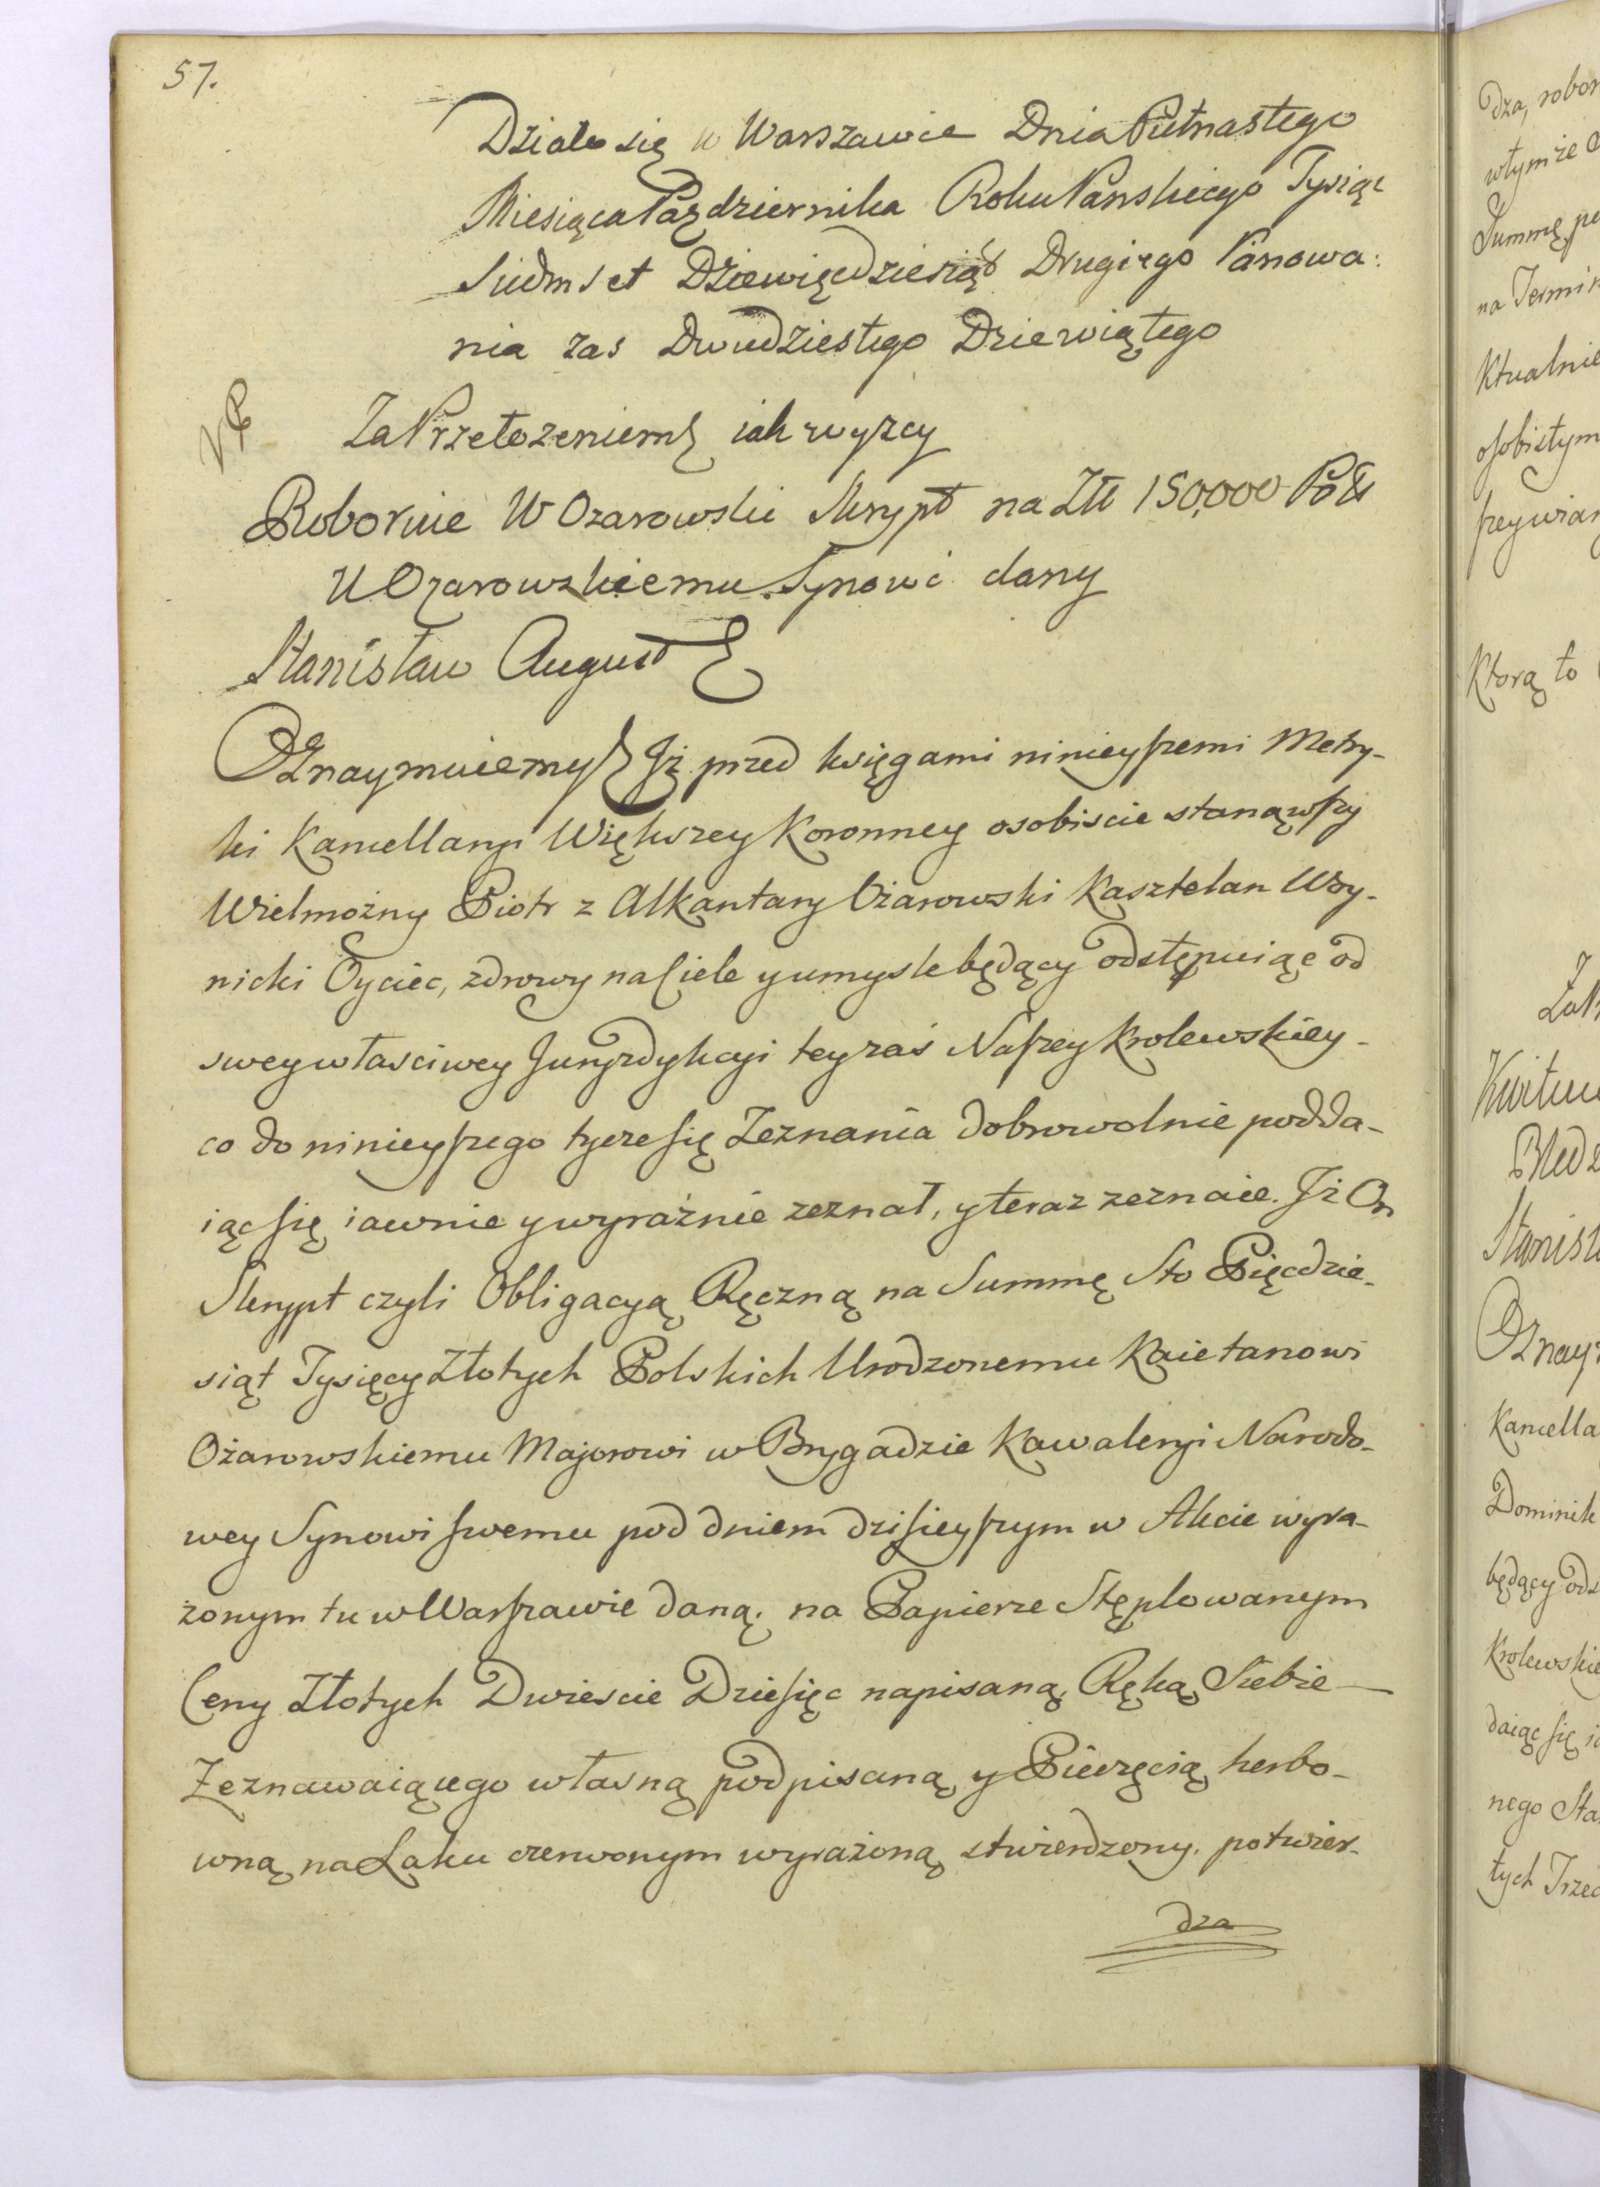 57.
Działo się w Warszawie Dnia Piętnastego
Miesiąca Października Roku Panskiego Tysiąc
Siedmset Dziewięcdziesiąt Drugiego Panowa:
nia zas Dwudziestego Dziewiątego
Za Przełozeniem iak wyzey
Roboruie W Ozarowski Skrypt na Złł 150,000 Pols
U Ozarowskiemu Synowi dany
Stanisław August
Oznaymuiemy Jż przed księgami ninieyszemi Metry-
ki Kancellaryi Większey Koronney osobiscie stanąwszy
Wielmożny Piotr z Alkantary Ożarowski Kasztelan Woy-
nicki Oyciec, zdrowy na Ciele y umysle będący odstępuiąc od
swey własciwey Juryzdykcyi tey zaś Naszey Krolewskiey
co do ninieyszego tycze się Zeznania dobrowolnie podda-
iąc się iawnie y wyraźnie zeznał, y teraz zeznaie. Jż On
Skrypt czyli Obligacyą Ręczną na Summę Sto Pięcdzie-
siąt Tysięcy Złotych Polskich Urodzonemu Kaietanowi
Ożarowskiemu Majorowi w Brygadzie Kawaleryi Narodo-
wey Synowi swemu pod dniem dzisieyszym w Akcie wyra-
żonym tu w Warszawie daną, na Papierze Stęplowanym
Ceny Złotych Dwiescie Dziesięc napisaną, Ręką Siebie
Zeznawaiącego własną podpisaną y Pieczęcią herbo-
wną na Laku czerwonym wyrażoną stwierdzony. potwier-
dza
dza, robor
w tymże
Summę
na Termin
ktualnie
osobistym
Ktorą to
Kwituie
Stanisł
Oznay
Kancella
Dominik
będący ods
Krolewskie
daiąc się
nego Sta
tych Trzec